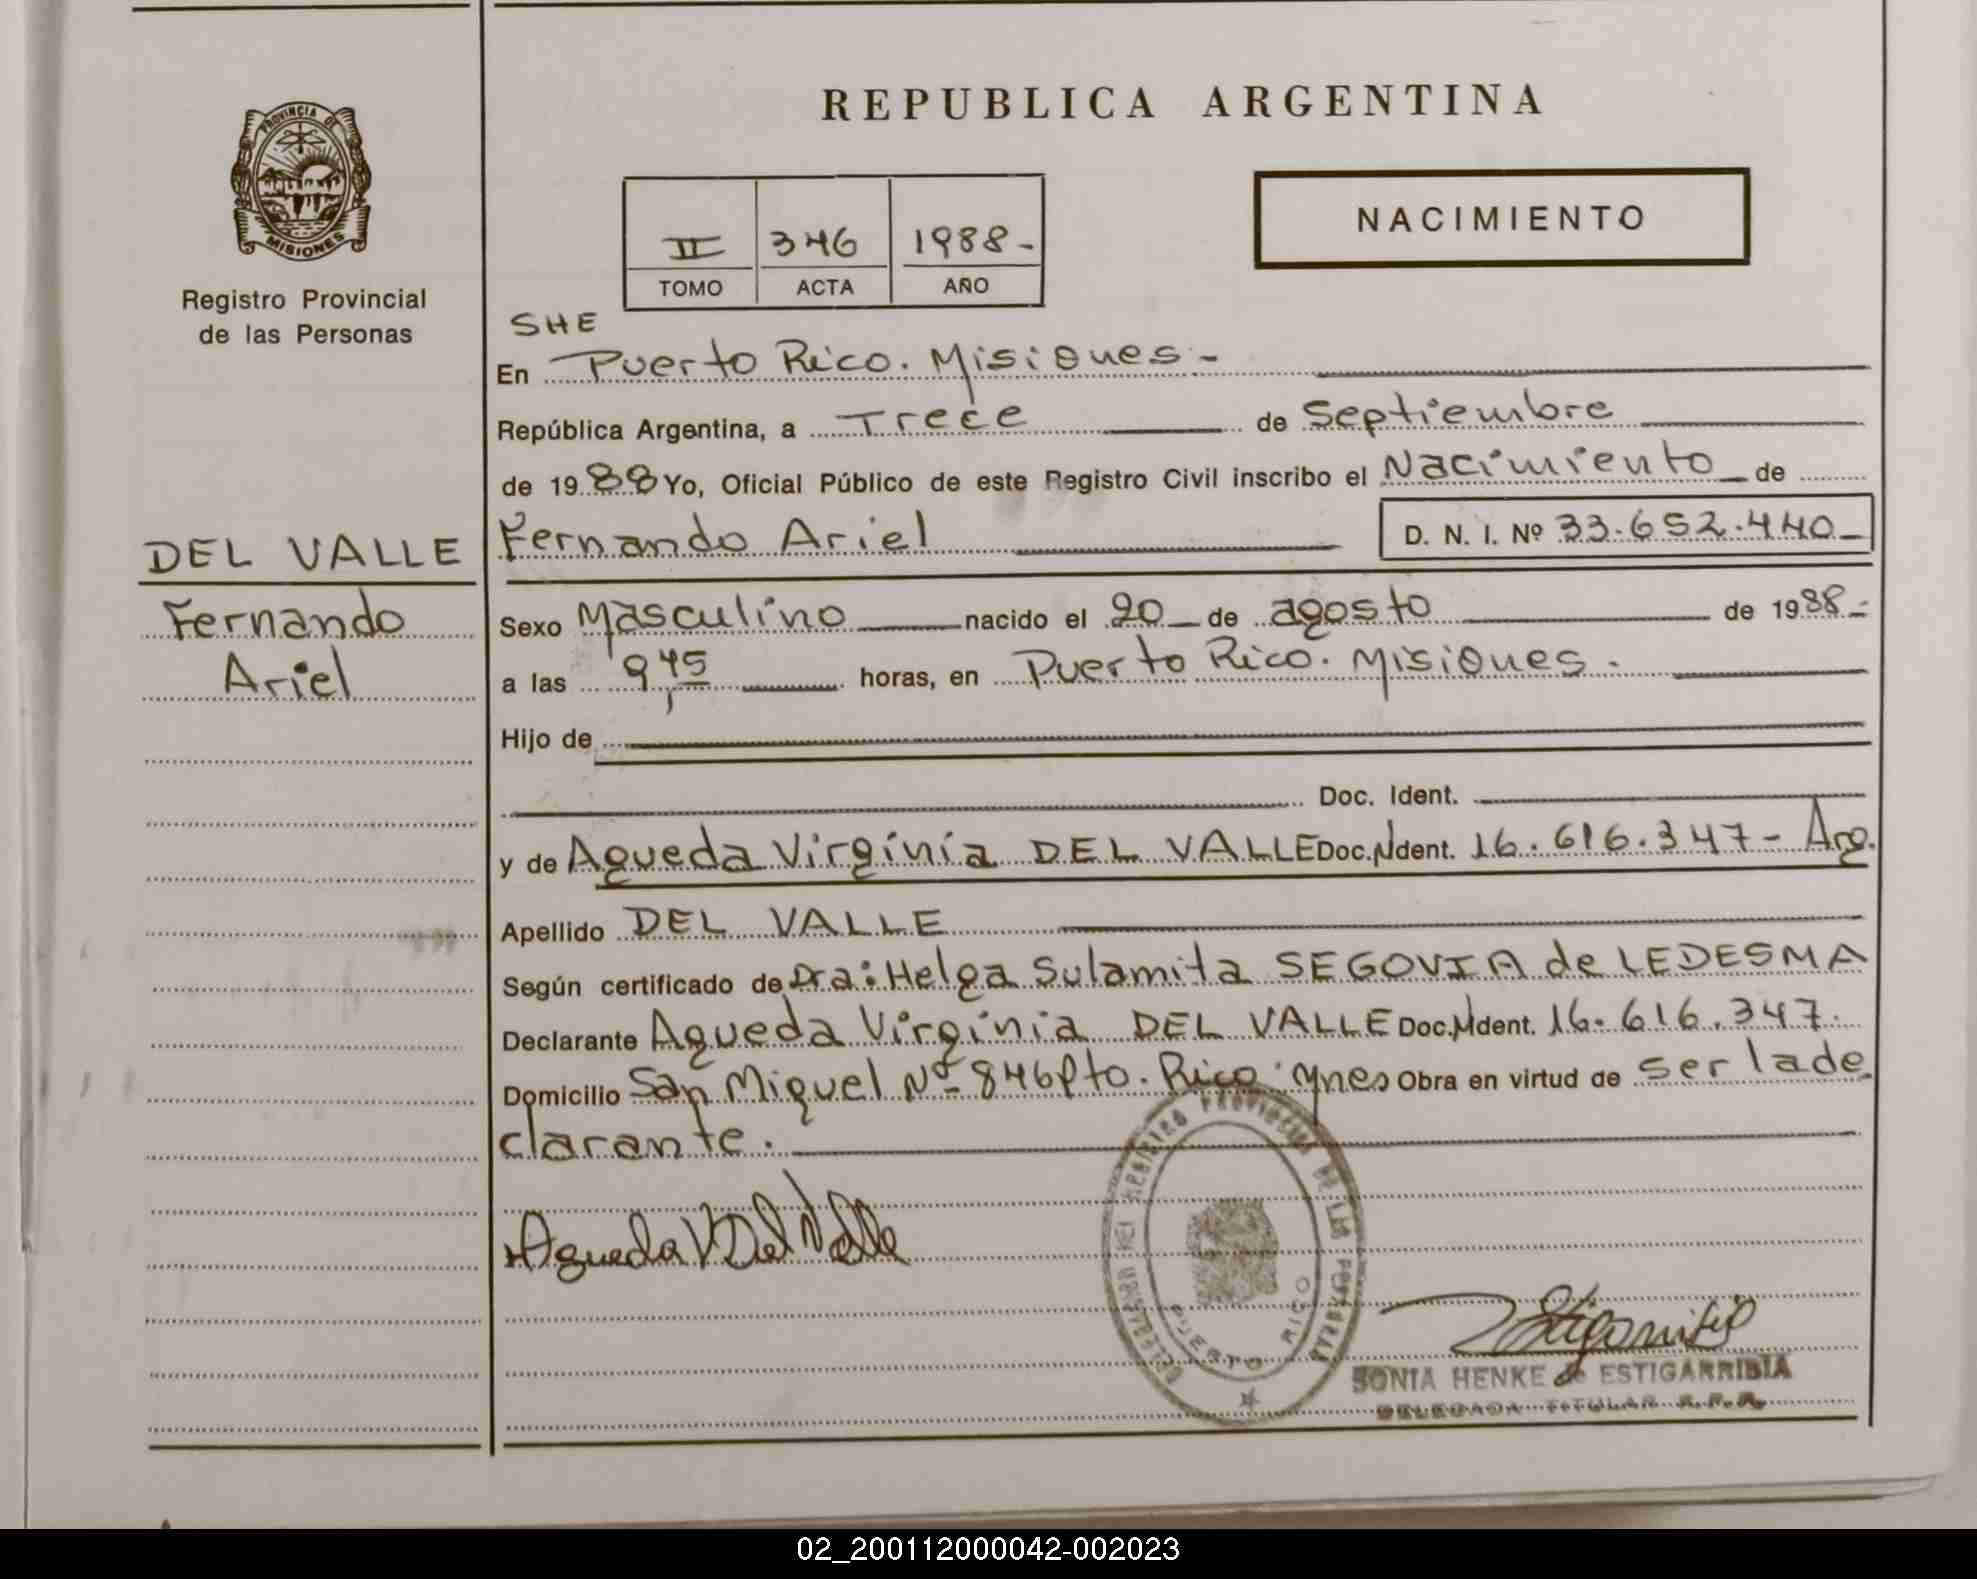 REPUBLICA ARGENTINA
PROVINCIA DE
MISIONES
Registro Provincial
de las Personas
NACIMIENTO
II 346 1988-
TOMO ACTA AÑO
SHE
En Puerto Rico. Misiones-
República Argentina, a Trece de Septiembre
de 1988 Yo, Oficial Público de este Registro Civil inscribo el Nacimiento de
DEL VALLE
Fernando
Ariel
Fernando Ariel D. N. I. Nº 33.652.440
Sexo Masculino nacido el 20 de agosto de 1988.-
a las 9,45 horas, en Puerto Rico. Misiones.
Hijo de
Doc. Ident.
y de Agueda Virginia DEL VALLE Doc. Ident. 16.616.347- Arg.
Apellido DEL VALLE
Según certificado de Dra: Helga Sulamita SEGOVIA de LEDESMA
Declarante Agueda Virginia DEL VALLE Doc. Ident. 16.616.347.
Domicilio San Miguel Nº 846 Pto. Rico. Mnes Obra en virtud de ser la de
clarante.
Agueda V Del Valle
DELEGACION DEL REGISTRO PROVINCIAL DE LAS PERSONAS
PUERTO RICO
SONIA HENKE de ESTIGARRIBIA
DELEGADA TITULAR R.P.P.
02_200112000042-002023